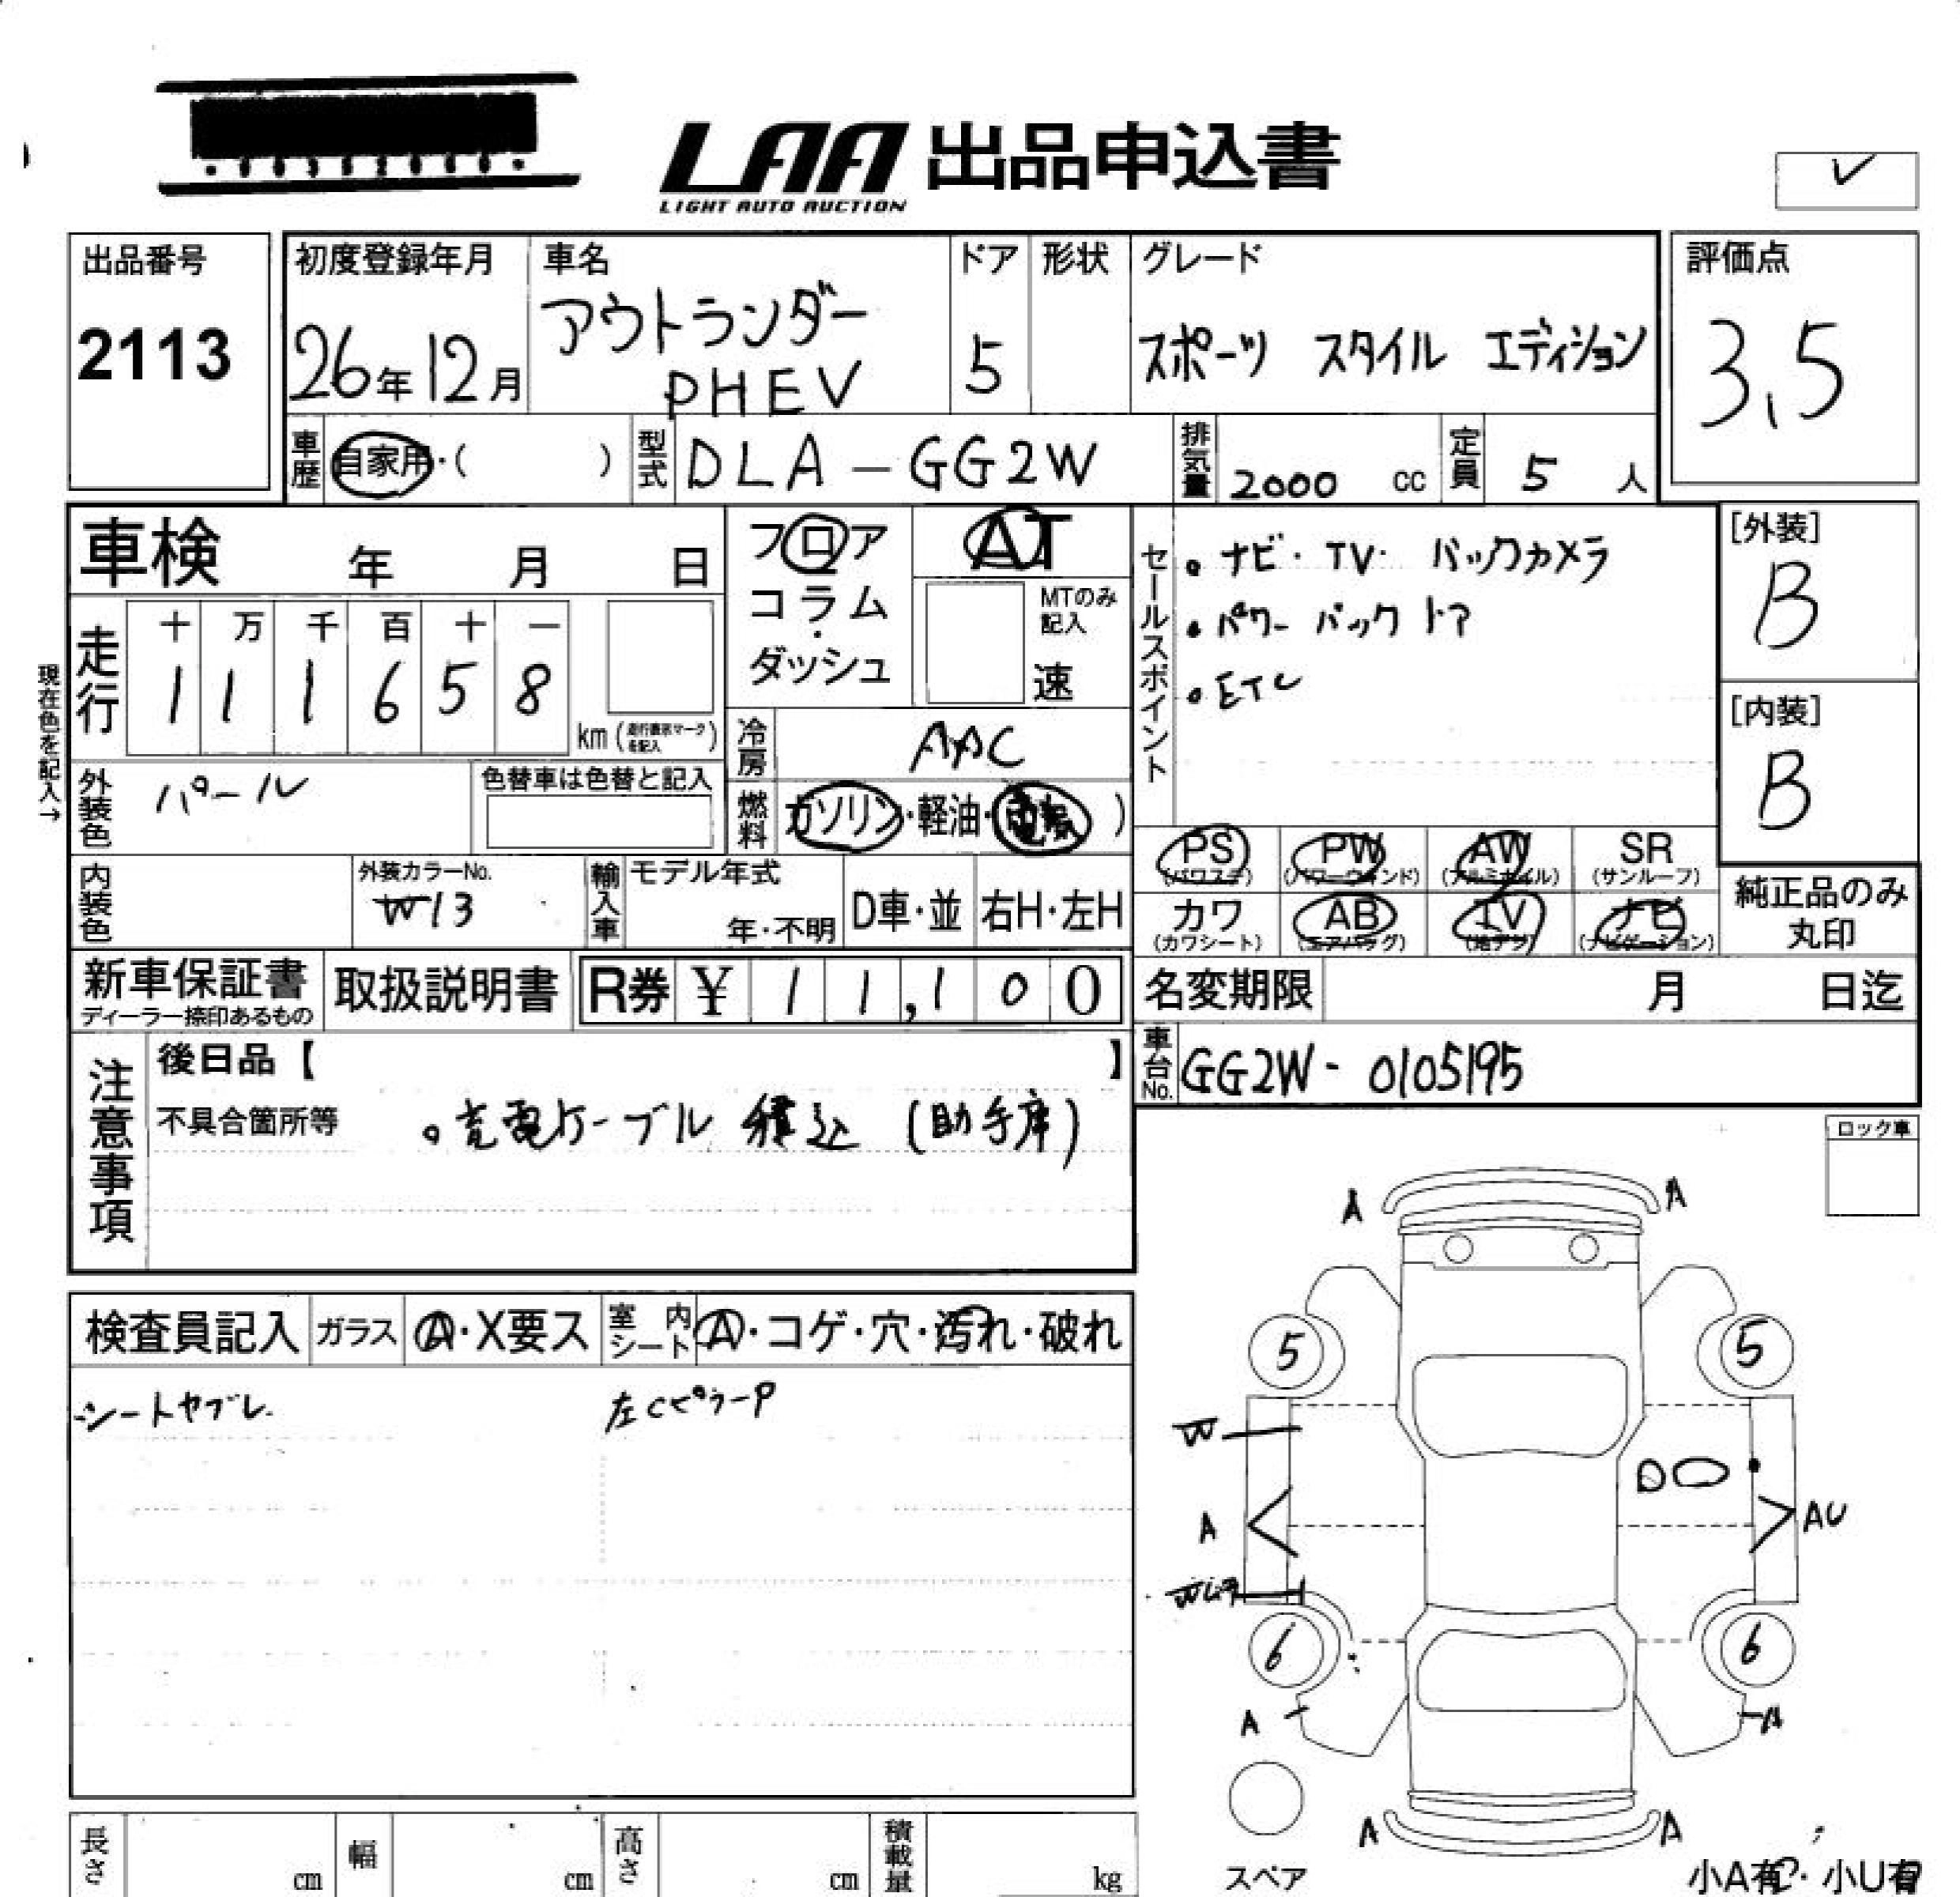 LAA 出品申込書
LIGHT AUTO AUCTION
✓
出品番号
2113
初度登録年月
26年12月
車名
アウトランダー
PHEV
ドア
5
形状
グレード
スポーツ スタイル エディション
評価点
3,5
車歴
自家用・( )
型式
DLA-GG2W
排気量
2000 cc
定員
5 人
車検 年 月 日
フロア
コラム
・
ダッシュ
AT
MTのみ
記入
速
セールスポイント
・ナビ・TV・バックカメラ
・パワーバックドア
・ETC
[外装]
B
[内装]
B
現在色を記入→
走行
十 万 千 百 十 一
1 1 1 6 5 8
km
冷房
AAC
外装色
パール
色替車は色替と記入
燃料
ガソリン・軽油・ )
PS
(パワステ)
PW
(パワーウィンド)
AW
(アルミホイル)
SR
(サンルーフ)
内装色
外装カラーNo.
W13
輸入車
モデル年式
年・不明
D車・並
右H・左H
カワ
(カワシート)
AB
(エアバッグ)
TV
(地デジ)
ナビ
(ナビゲーション)
純正品のみ
丸印
新車保証書
ディーラー捺印あるもの
取扱説明書
R券 ¥ 1 1,1 0 0
名変期限 月 日迄
注意事項
後日品【 】
車台No.
GG2W-0105195
不具合箇所等
・充電ケーブル 積込 (助手席)
ロック車
検査員記入
ガラス
A・X要ス
室内シート
A・コゲ・穴・汚れ・破れ
シートヤブレ
左CピラーP
A A
5 5
W
A AU
W
6 6
A A
A A
スペア
小A有・小U有
長さ cm
幅 cm
高さ cm
積載量 kg